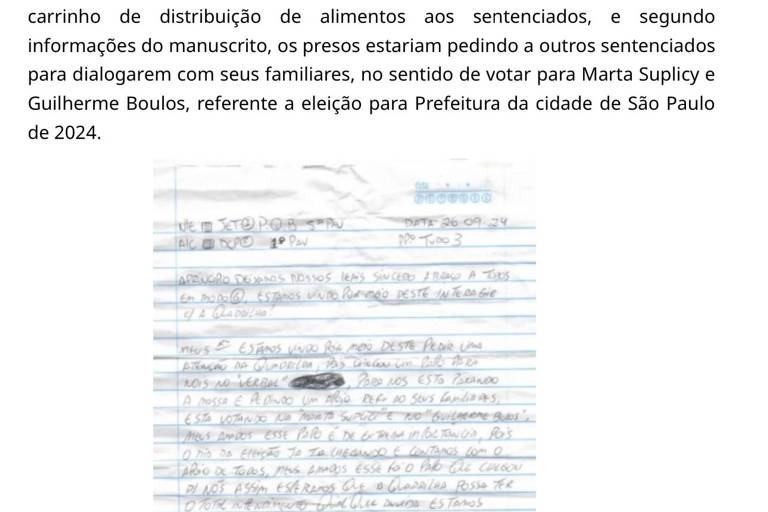 carrinho de distribuição de alimentos aos sentenciados, e segundo
informações do manuscrito, os presos estariam pedindo a outros sentenciados
para dialogarem com seus familiares, no sentido de votar para Marta Suplicy e
Guilherme Boulos, referente a eleição para Prefeitura da cidade de São Paulo
de 2024.
DATA 26 09 24
1º PAV TUDO 3
DEIXAMOS NOSSOS LEAIS SINCERO ABRAÇO A TODOS
EM MODO G, ESTAMOS VINDO POR MEIO DESTE INTERAGIR
C/ A QUADRILHA!
MEUS ESTAMOS VINDO POR MEIO DESTE PEDIR UMA
ATENÇÃO DA QUADRILHA, POIS CHEGOU UM PAPO PARA
NOIS NO "VERBAL" PARA NOS ESTA
A NOSSA E PEDINDO UM APOIO REF. AO SEUS FAMILIARES,
ESTA VOTANDO NA "MARTA SUPLICY" E NO "GUILHERME BOULOS",
MEUS AMADOS ESSE PAPO É DE EXTREMA IMPORTANCIA, POIS
O DIA DA ELEIÇÃO JA TA CHEGANDO E CONTAMOS COM O
APOIO DE TODOS, MEUS AMADOS ESSE FOI O PAPO QUE CHEGOU
P/ NÓS ASSIM ESPERAMOS QUE A QUADRILHA POSSA TER
O TOTAL ENTENDIMENTO QUALQUER DUVIDA ESTAMOS